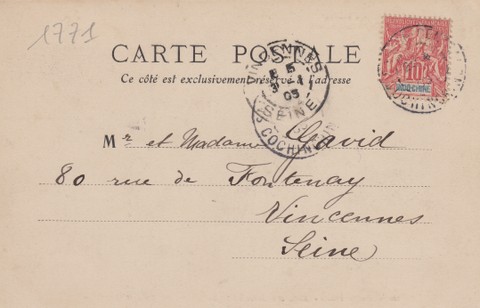 1771
CARTE POSTALE
Ce côté est exclusivement réservé à l'adresse
VINCENNES
05
SEINE
COCHINCHINE
10
INDO-CHINE
COCHINCHINE
Mr et Madame David
80 rue de Fontenay
Vincennes
Seine